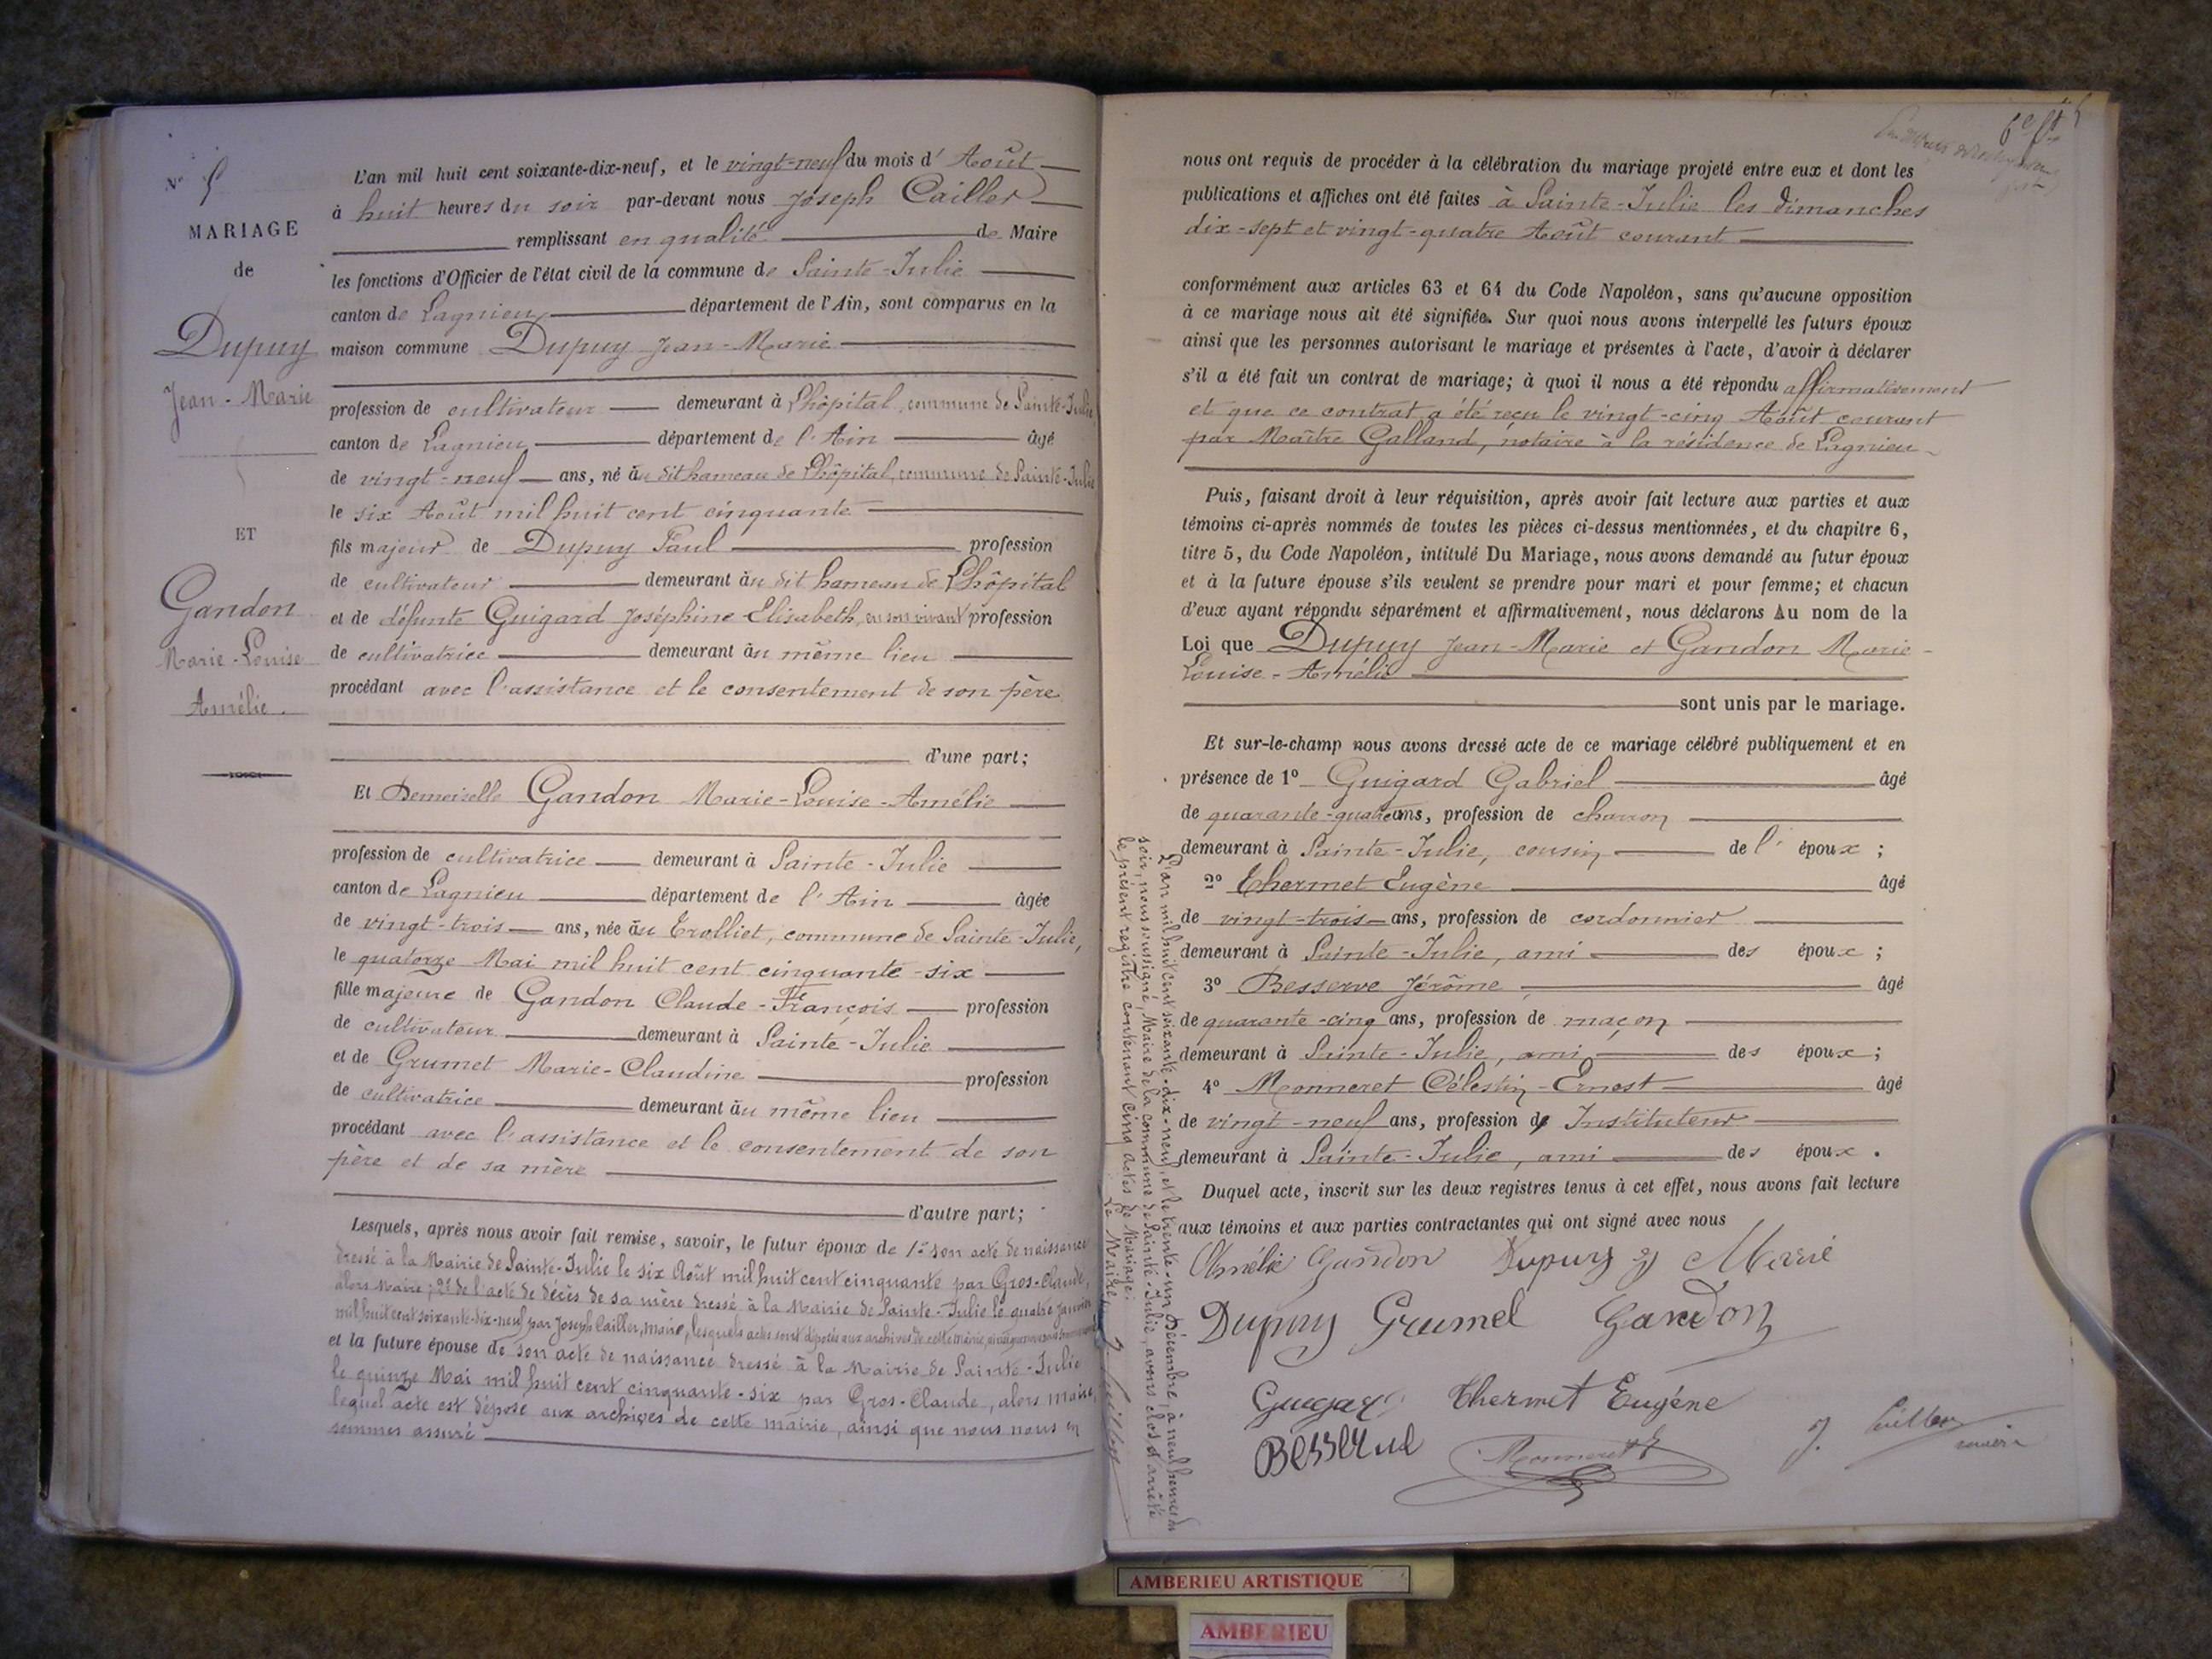 Nº 5
MARIAGE
de
Dupuy
Jean-Marie
ET
Gandon
Marie-Louise
Amélie.
L'an mil huit cent soixante-dix-neuf, et le vingt-neuf du mois d'Août
à huit heures du soir par-devant nous Joseph Cailler
remplissant en qualité de Maire
les fonctions d'Officier de l'état civil de la commune de Sainte-Julie
canton de Lagnieu département de l'Ain, sont comparus en la
maison commune Dupuy Jean-Marie
profession de cultivateur demeurant à Lhôpital, commune de Sainte-Julie
canton de Lagnieu département de l'Ain âgé
de vingt-neuf ans, né au dit hameau de Lhôpital, commune de Sainte-Julie
le six Août mil huit cent cinquante
fils majeur de Dupuy Paul profession
de cultivateur demeurant au dit hameau de Lhôpital
et de défunte Guigard Joséphine Elisabeth, en son vivant profession
de cultivatrice demeurant au même lieu
procédant avec l'assistance et le consentement de son père
d'une part;
Et Demoiselle Gandon Marie-Louise-Amélie
profession de cultivatrice demeurant à Sainte-Julie
canton de Lagnieu département de l'Ain âgée
de vingt-trois ans, née au Trolliet, commune de Sainte-Julie,
le quatorze Mai mil huit cent cinquante-six
fille majeure de Gandon Claude-François profession
de cultivateur demeurant à Sainte-Julie
et de Grumet Marie-Claudine profession
de cultivatrice demeurant au même lieu
procédant avec l'assistance et le consentement de son
père et de sa mère
d'autre part;
Lesquels, après nous avoir fait remise, savoir, le futur époux de 1º son acte de naissance
dressé à la Mairie de Sainte-Julie le six Août mil huit cent cinquante par Gros-Claude,
alors Maire; 2º de l'acte de décès de sa mère dressé à la Mairie de Sainte-Julie le quatre Janvier
mil huit cent soixante-dix-neuf par Joseph Cailler, maire, lesquels actes sont déposés aux archives de cette mairie, ainsi que nous nous en sommes assuré
et la future épouse de son acte de naissance dressé à la Mairie de Sainte-Julie
le quinze Mai mil huit cent cinquante-six par Gros-Claude, alors maire,
lequel acte est déposé aux archives de cette mairie, ainsi que nous nous en
sommes assuré
6e ft
nous ont requis de procéder à la célébration du mariage projeté entre eux et dont les
publications et affiches ont été faites à Sainte-Julie les dimanches
dix-sept et vingt-quatre Août courant
conformément aux articles 63 et 64 du Code Napoléon, sans qu'aucune opposition
à ce mariage nous ait été signifiée. Sur quoi nous avons interpellé les futurs époux
ainsi que les personnes autorisant le mariage et présentes à l'acte, d'avoir à déclarer
s'il a été fait un contrat de mariage; à quoi il nous a été répondu affirmativement
et que ce contrat a été reçu le vingt-cinq Août courant
par Maître Galland, notaire à la résidence de Lagnieu
Puis, faisant droit à leur réquisition, après avoir fait lecture aux parties et aux
témoins ci-après nommés de toutes les pièces ci-dessus mentionnées, et du chapitre 6,
titre 5, du Code Napoléon, intitulé Du Mariage, nous avons demandé au futur époux
et à la future épouse s'ils veulent se prendre pour mari et pour femme; et chacun
d'eux ayant répondu séparément et affirmativement, nous déclarons Au nom de la
Loi que Dupuy Jean-Marie et Gandon Marie-
Louise-Amélie
sont unis par le mariage.
Et sur-le-champ nous avons dressé acte de ce mariage célébré publiquement et en
présence de 1º Guigard Gabriel âgé
de quarante-quatre ans, profession de charron
demeurant à Sainte-Julie, cousin de l'époux;
2º Thermet Eugène âgé
de vingt-trois ans, profession de cordonnier
demeurant à Sainte-Julie, ami des époux;
3º Besserve Jérôme, âgé
de quarante-cinq ans, profession de maçon
demeurant à Sainte-Julie, ami des époux;
4º Monneret Célestin-Ernest âgé
de vingt-neuf ans, profession de Instituteur
demeurant à Sainte-Julie, ami des époux.
Duquel acte, inscrit sur les deux registres tenus à cet effet, nous avons fait lecture
aux témoins et aux parties contractantes qui ont signé avec nous
Amélie Gandon Dupuy j Marie
Dupuy Grumel Gandon
Guigard Thermet Eugéne
Besserve Monneret J. Cailler
maire
L'an mil huit cent soixante-dix-neuf, et le trente-un Décembre, à neuf heures du
soir, nous soussigné, Maire de la commune de Sainte-Julie, avons clos et arrêté
le présent registre contenant cinq actes de Mariage.
Le Maire
J. Cailler
AMBERIEU ARTISTIQUE
AMBERIEU